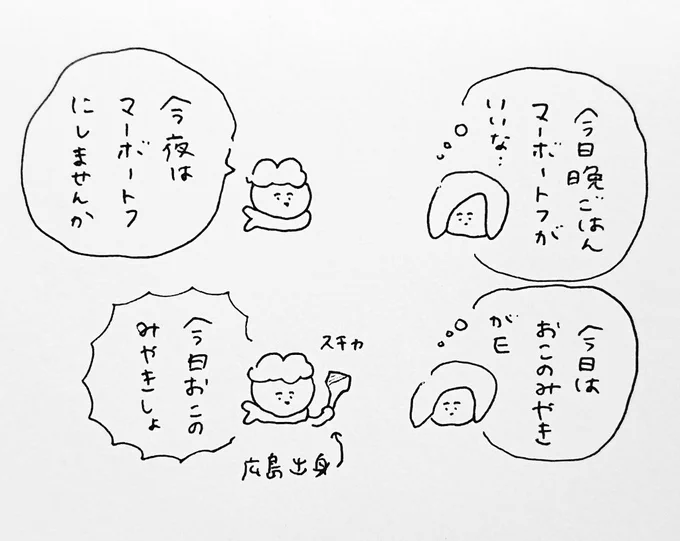 今日晩ごはん
マーボートフが
いいな…
今夜は
マーボートフ
にしませんか
今日は
おこのみやき
がE
スチャ
今日おこの
みやきしょ
広島出身